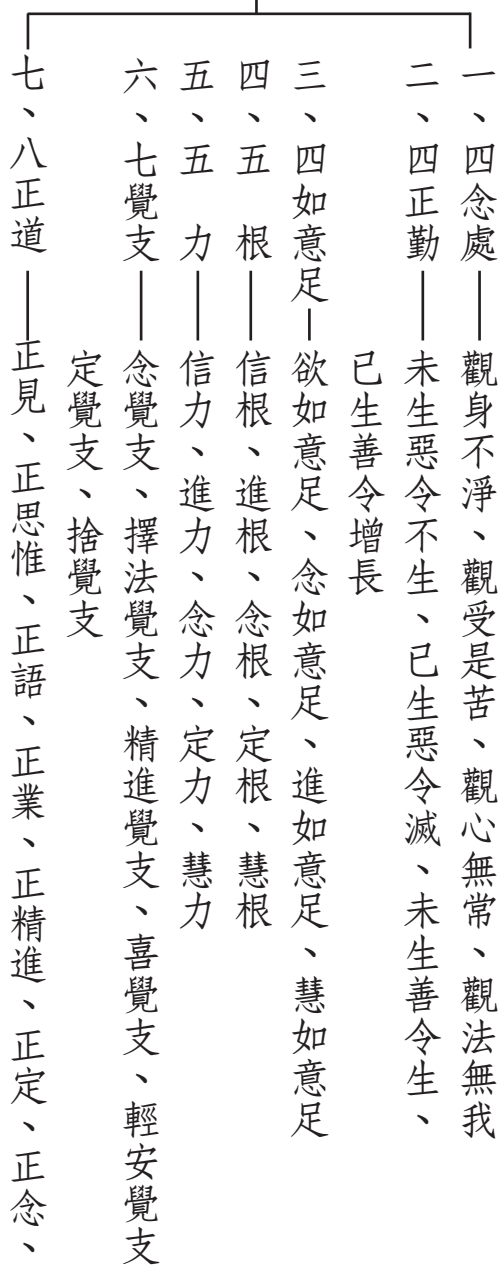 一、四念處——觀身不淨、觀受是苦、觀心無常、觀法無我
二、四正勤——未生惡令不生、已生惡令滅、未生善令生、
已生善令增長
三、四如意足—欲如意足、念如意足、進如意足、慧如意足
四、五　根——信根、進根、念根、定根、慧根
五、五　力——信力、進力、念力、定力、慧力
六、七覺支——念覺支、擇法覺支、精進覺支、喜覺支、輕安覺支
定覺支、捨覺支
七、八正道——正見、正思惟、正語、正業、正精進、正定、正念、